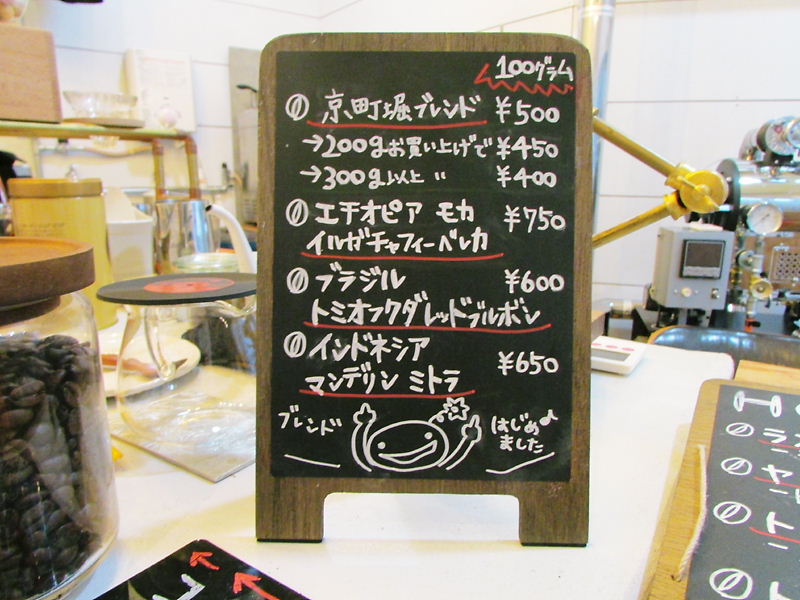 100グラム
京町堀ブレンド ¥500
→200gお買い上げで ¥450
→300g以上 〃 ¥400
エチオピア モカ ¥750
イルガチャフィーベレカ
ブラジル ¥600
トミオフクダレッドブルボン
インドネシア ¥650
マンデリン ミトラ
ブレンド
はじめ
ました